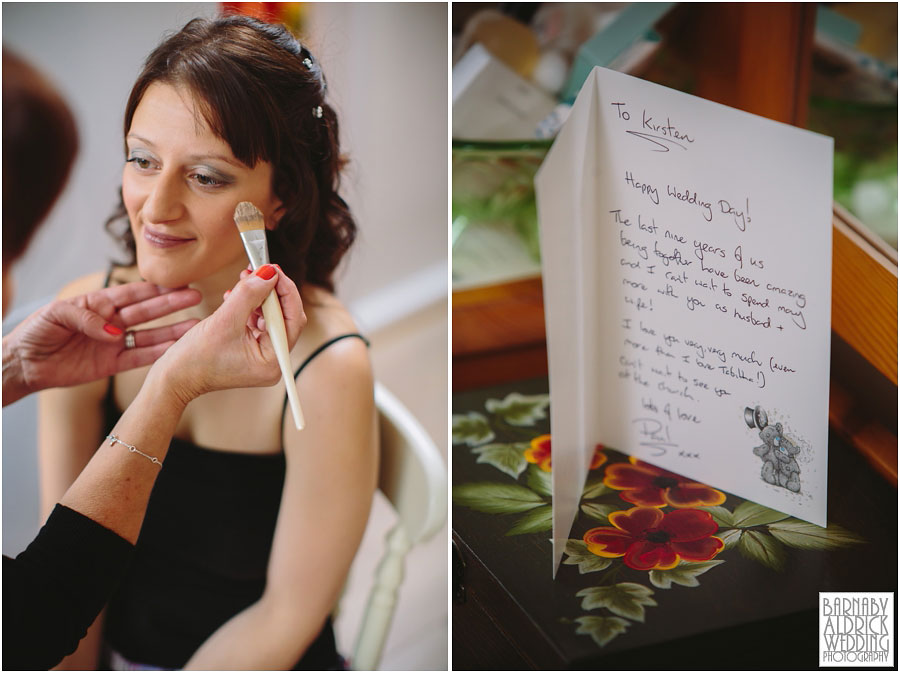 To Kirsten
Happy Wedding Day!
The last nine years of us
being together have been amazing
and I can't wait to spend many
more with you as husband +
wife!
I love you very, very much (even
more than I love Tabitha!)
Can't wait to see you
at the church.
lots of love
Paul
xxx
BARNABY
ALDRICK
WEDDING
PHOTOGRAPHY